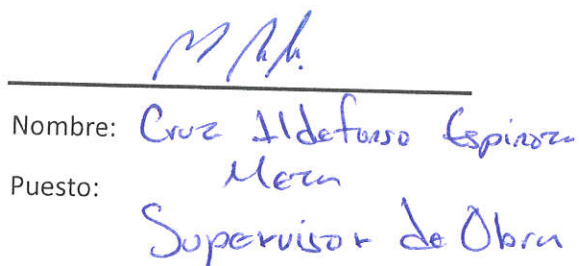 Nombre: Cruz Ildefonso Espinoza
Puesto: Meza
Supervisor de Obra